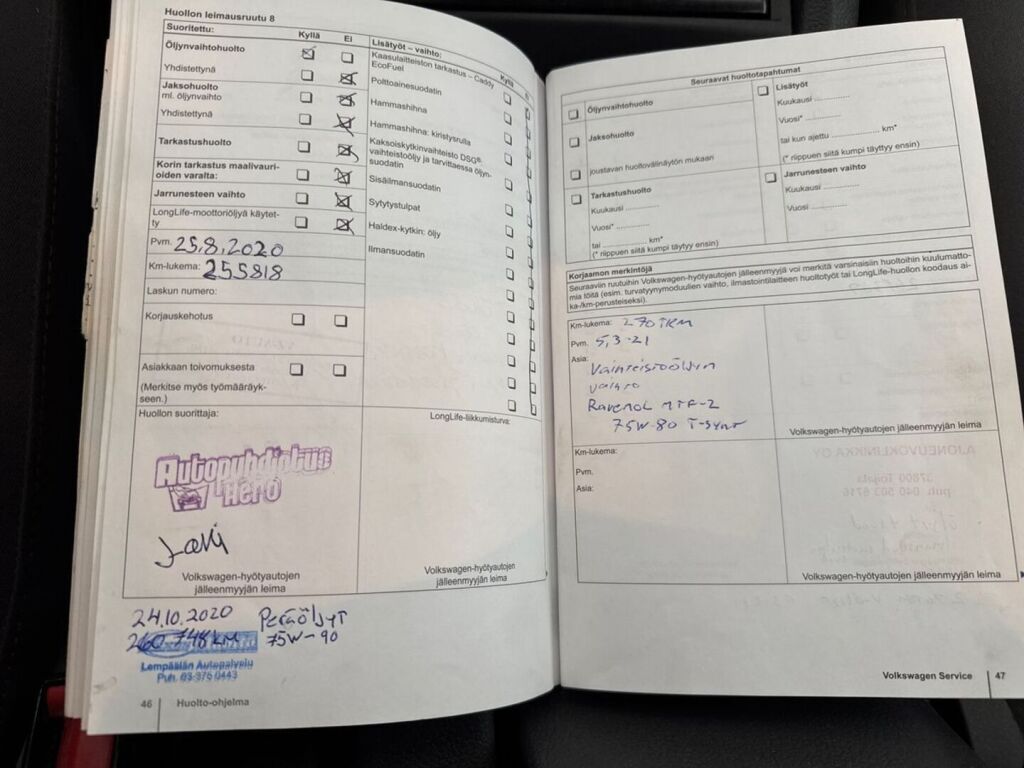 Huollon leimausruutu 8
Suoritettu:
Kyllä
Ei
Öljynvaihtohuolto
Yhdistettynä
Jaksohuolto
ml. öljynvaihto
Yhdistettynä
Tarkastushuolto
Korin tarkastus maalivauri-
oiden varalta:
Jarrunesteen vaihto
LongLife-moottoriöljyä käytet-
ty
Pvm. 25.8.2020
Km-lukema: 255818
Laskun numero:
Korjauskehotus
Asiakkaan toivomuksesta
(Merkitse myös työmääräyk-
seen.)
Lisätyöt – vaihto:
Kyllä
Kaasulaitteiston tarkastus – Caddy
EcoFuel
Polttoainesuodatin
Hammashihna
Hammashihna: kiristysrulla
Kaksoiskytkinvaihteisto DSG®:
vaihteistoöljy ja tarvittaessa öljyn-
suodatin
Sisäilmansuodatin
Sytytystulpat
Haldex-kytkin: öljy
Ilmansuodatin
Huollon suorittaja:
LongLife-liikkumisturva:
Autopuhdistus
Hero
Jari
Volkswagen-hyötyautojen
jälleenmyyjän leima
Volkswagen-hyötyautojen
jälleenmyyjän leima
24.10.2020 Peräöljyt
260 748 km 75W-90
Lempäälän Autopalvelu
Puh. 03-375 0443
46 Huolto-ohjelma
Seuraavat huoltotapahtumat
Öljynvaihtohuolto
Jaksohuolto
joustavan huoltovälinäytön mukaan
Tarkastushuolto
Kuukausi ............
Vuosi* ............
tai ............ km*
(* riippuen siitä kumpi täytyy ensin)
Lisätyöt
Kuukausi ............
Vuosi* ............
tai kun ajettu ............ km*
(* riippuen siitä kumpi täyttyy ensin)
Jarrunesteen vaihto
Kuukausi ............
Vuosi ............
Korjaamon merkintöjä
Seuraaviin ruutuihin Volkswagen-hyötyautojen jälleenmyyjä voi merkitä varsinaisiin huoltoihin kuulumatto-
mia töitä (esim. turvatyynymoduulien vaihto, ilmastointilaitteen huoltotyöt tai LongLife-huollon koodaus ai-
ka-/km-perusteiseksi).
Km-lukema: 270TKM
Pvm. 5,3-21
Asia:
Vaihteistoöljyn
vaihto
Ravenol MTF-2
75W-80
Volkswagen-hyötyautojen jälleenmyyjän leima
Km-lukema:
Pvm.
Asia:
Volkswagen-hyötyautojen jälleenmyyjän leima
Volkswagen Service 47